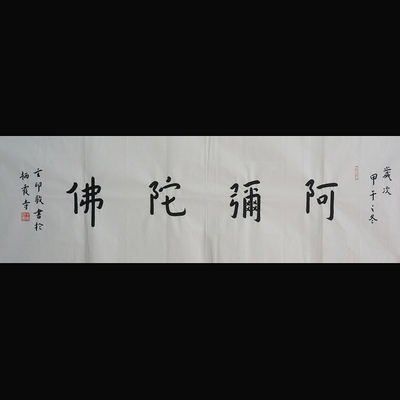 歲次
甲午之冬
阿彌陀佛
印敬書於
栖霞寺